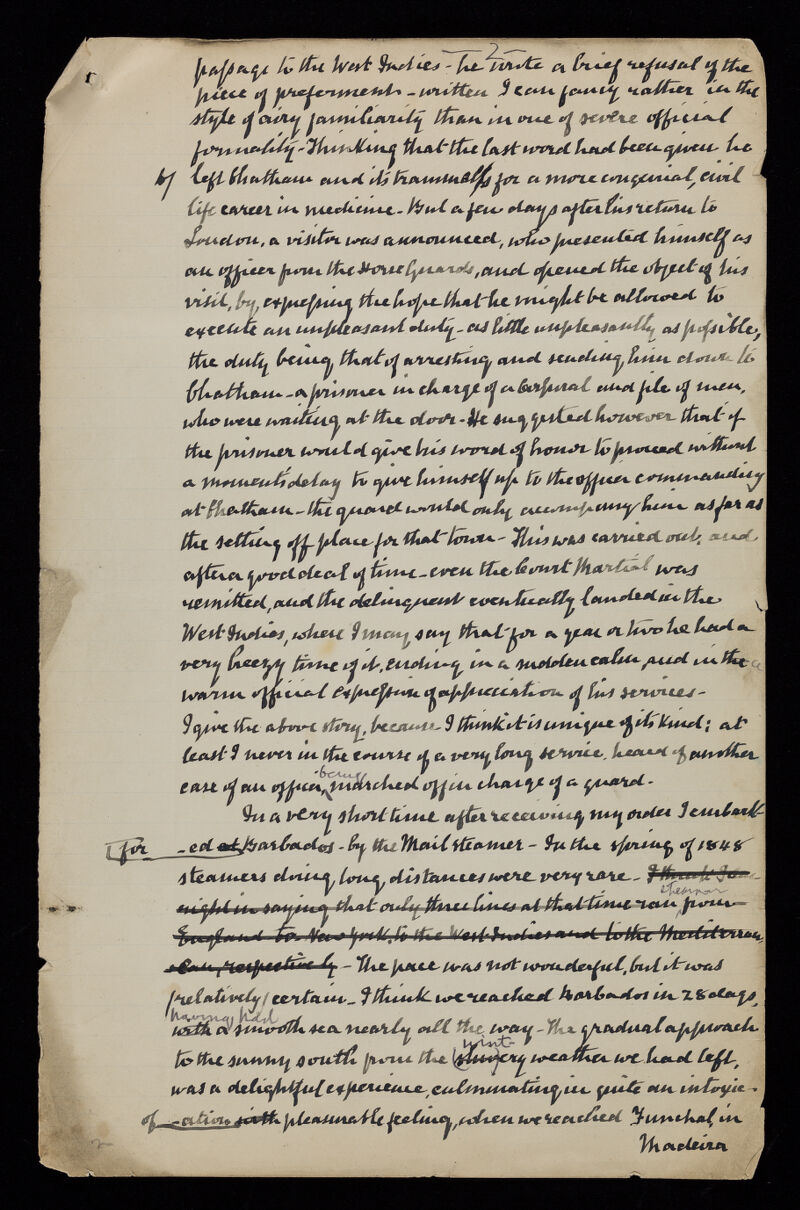 passage to the West Indies - he wrote a brief refusal of the
piece of preferment - written I can fancy rather in the
style of airy familiarity than in one of severe official
formality - Thinking that the last word had been given he
left Chatham and its trammels for a more congenial, civil
life career in medicine - But a few days after his return to
London, a visitor was announced, who presented himself as
an officer from the Horse Guards, and opened the object of his
visit, by, expressing the hope that he might be allowed to
execute an unpleasant duty - as little unpleasantly as possible,
the duty being that of arresting and sending him down to
Chatham - a prisoner in charge of a Corporal and file of men,
who were waiting at the door - He suggested however that if
the prisoner would give his word of honor to proceed without
a moments' delay to give himself up to the officer commanding
at Chatham - the guard would only accompany him as far as
the setting off place for that town - This was carried out, and
after a good deal of time - even the Court Martial was
remitted, and the delinquent eventually landed in the
West Indies, where I may say that for a year or two he had a
very breezy time of it, ending in a sudden calm, and in the
warm official expression of appreciation of his services -
I give the above story, because I think it is unique of its kind; at
least I never in the course of a very long service, heard of another
case of an officer, being marched off in charge of a guard -
In a very short time after receiving my order I embark
for -ed at Barbados - by the Mail steamer - In the spring of 1848
steamers doing long distances were very rare - I think I am
right in saying that only three lines at that time ran steamer from
England to New York, to the West Indies and to the Mediterran
ean, respectively - The pace was not wonderful, but it was
relatively certain - I think we reached Barbados in 28 days,
having had
with a smooth sea nearly all the way - The gradual approach
to the sunny south from the wintery weather we had left,
was a delightful experience, culminating in quite an intoxic-
of -ation with pleasurable feeling, when we reached Funchal, in
Madeira